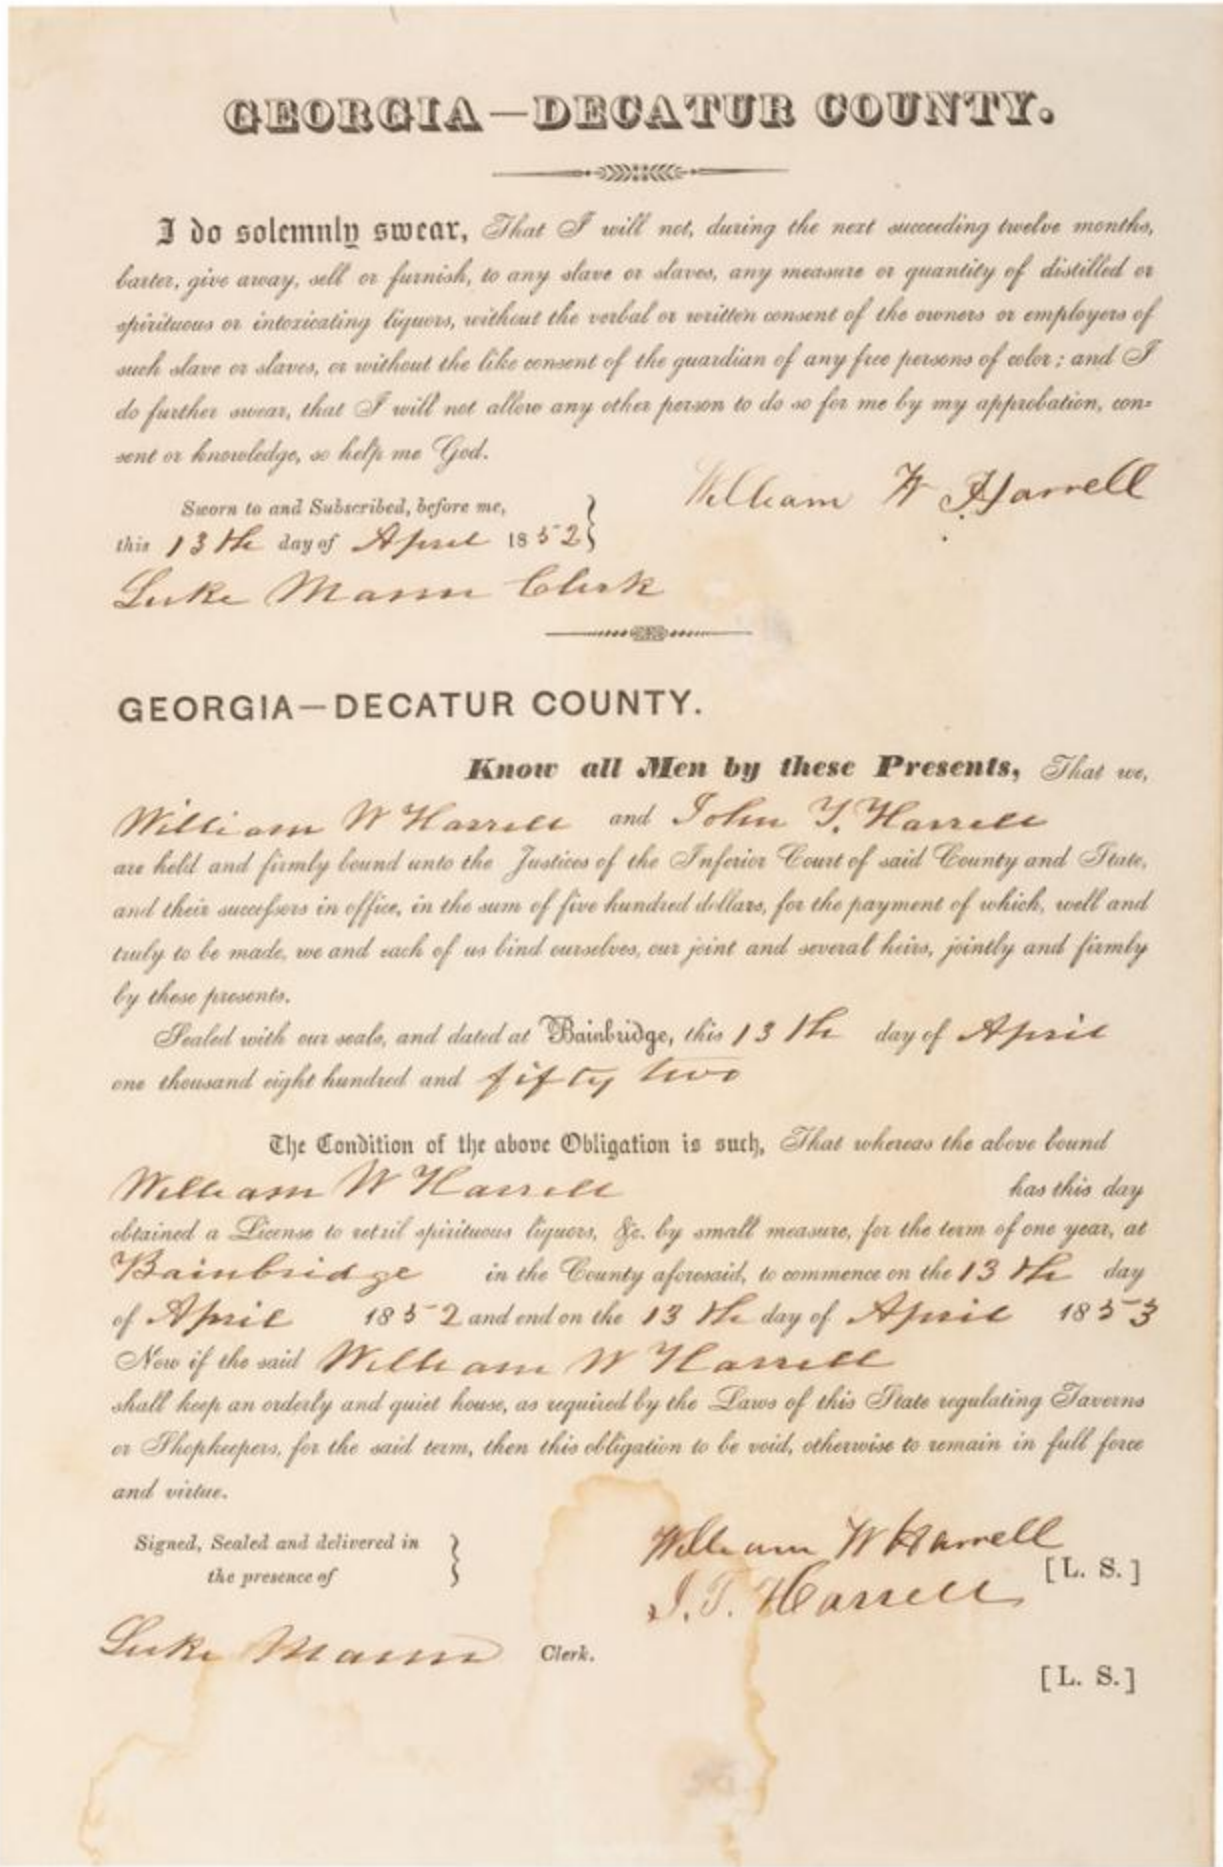 GEORGIA—DECATUR COUNTY.
I do solemnly swear, That I will not, during the next succeeding twelve months,
barter, give away, sell or furnish, to any slave or slaves, any measure or quantity of distilled or
spirituous or intoxicating liquors, without the verbal or written consent of the owners or employers of
such slave or slaves, or without the like consent of the guardian of any free persons of color; and I
do further swear, that I will not allow any other person to do so for me by my approbation, con-
sent or knowledge, so help me God.
William W Harrell
Sworn to and Subscribed, before me,
this 13th day of April 1852
Luke Mann Clerk
GEORGIA—DECATUR COUNTY.
Know all Men by these Presents, That we,
William W Harrell and John T. Harrell
are held and firmly bound unto the Justices of the Inferior Court of said County and State,
and their successors in office, in the sum of five hundred dollars, for the payment of which, well and
truly to be made, we and each of us bind ourselves, our joint and several heirs, jointly and firmly
by these presents.
Sealed with our seals, and dated at Bainbridge, this 13th day of April
one thousand eight hundred and fifty two
The Condition of the above Obligation is such, That whereas the above bound
William W Harrell has this day
obtained a License to retail spirituous liquors, &c. by small measure, for the term of one year, at
Bainbridge in the County aforesaid, to commence on the 13th day
of April 1852 and end on the 13th day of April 1853
Now if the said William W Harrell
shall keep an orderly and quiet house, as required by the Laws of this State regulating Taverns
or Shopkeepers, for the said term, then this obligation to be void, otherwise to remain in full force
and virtue.
Signed, Sealed and delivered in
the presence of
William W Harrell [L. S.]
J. T. Harrell
Luke Mann Clerk.
[L. S.]